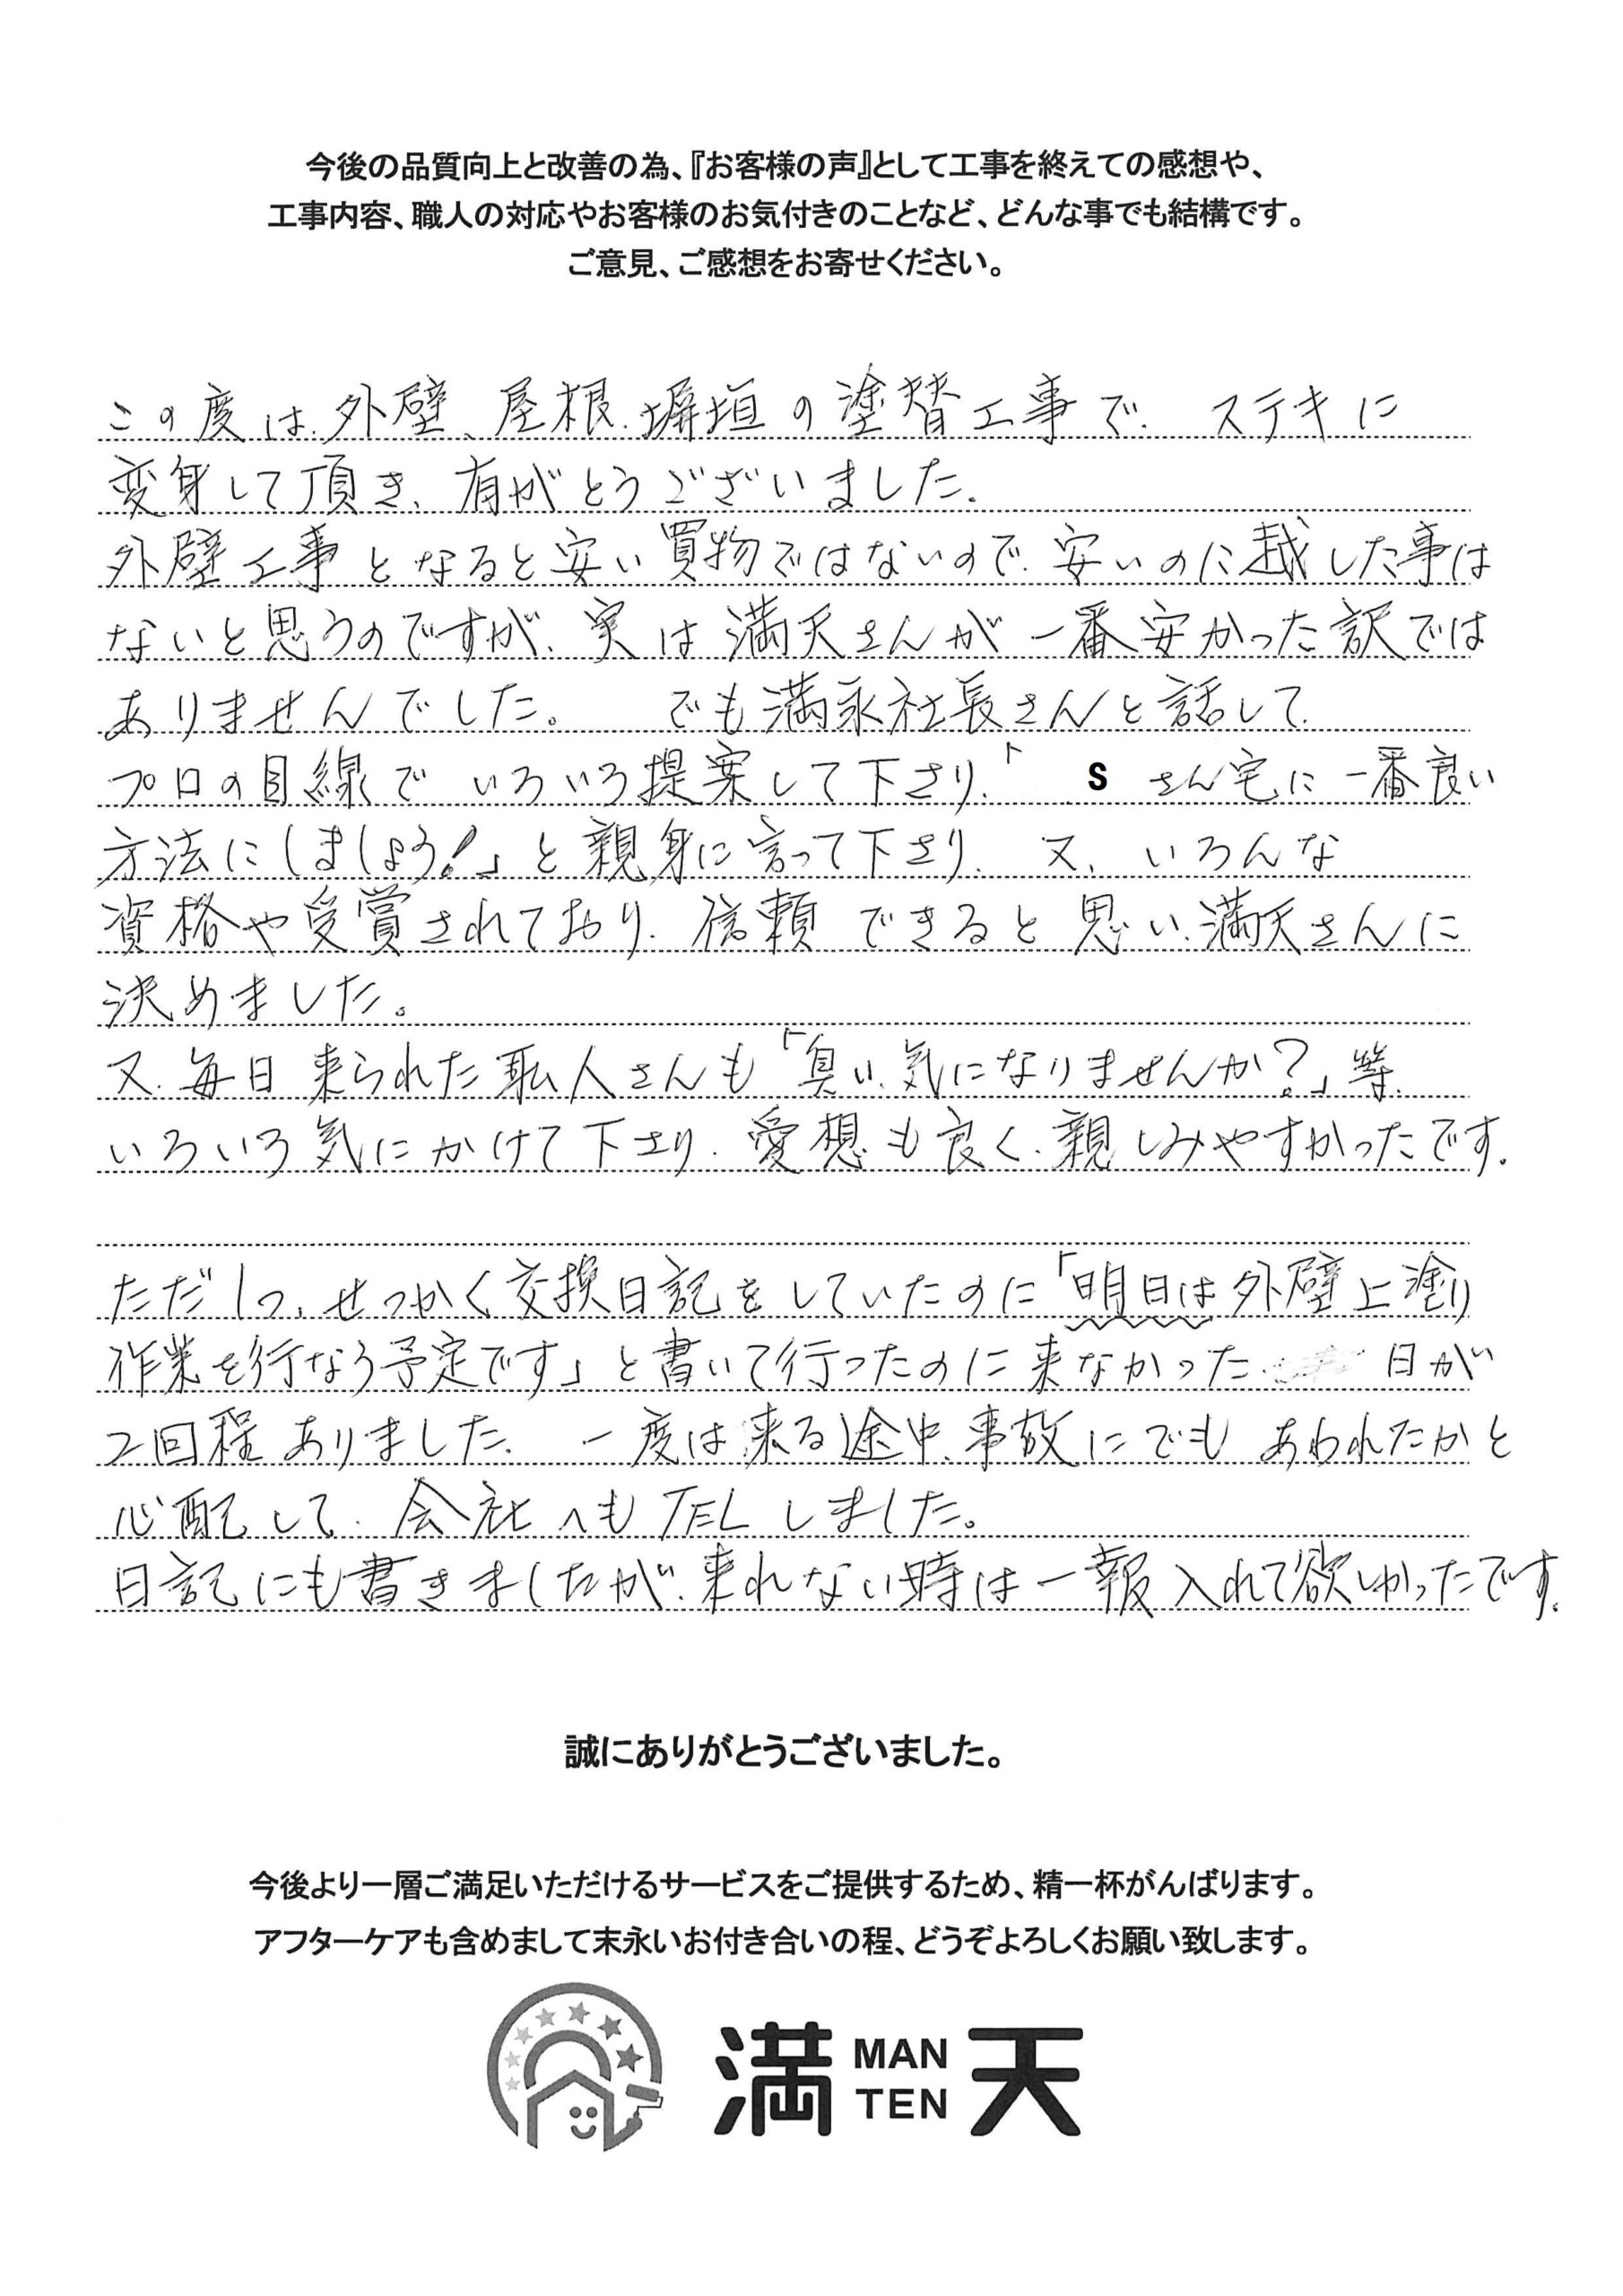 今後の品質向上と改善の為、『お客様の声』として工事を終えての感想や、
工事内容、職人の対応やお客様のお気付きのことなど、どんな事でも結構です。
ご意見、ご感想をお寄せください。
この度は、外壁、屋根、塀垣の塗替工事で、ステキに
変身して頂き、有がとうございました。
外壁工事となると安い買物ではないので、安いのに越した事は
ないと思うのですが、実は満天さんが一番安かった訳では
ありませんでした。 でも満永社長さんと話して、
プロの目線でいろいろ提案して下さり、「 S さん宅に一番良い
方法にしましょう!」と親身に言って下さり、又、いろんな
資格や受賞されており、信頼できると思い、満天さんに
決めました。
又、毎日来られた職人さんも「臭い、気になりませんか?」等、
いろいろ気にかけて下さり、愛想も良く、親しみやすかったです。
ただ1つ、せっかく交換日記をしていたのに「明日は外壁上塗り
作業を行なう予定です」と書いて行ったのに来なかった 日が
2回程ありました。 一度は来る途中、事故にでもあわれたかと
心配して、会社へもTELしました。
日記にも書きましたが、来れない時は一報入れて欲しかったです。
誠にありがとうございました。
今後より一層ご満足いただけるサービスをご提供するため、精一杯がんばります。
アフターケアも含めまして末永いお付き合いの程、どうぞよろしくお願い致します。
満 MAN TEN 天